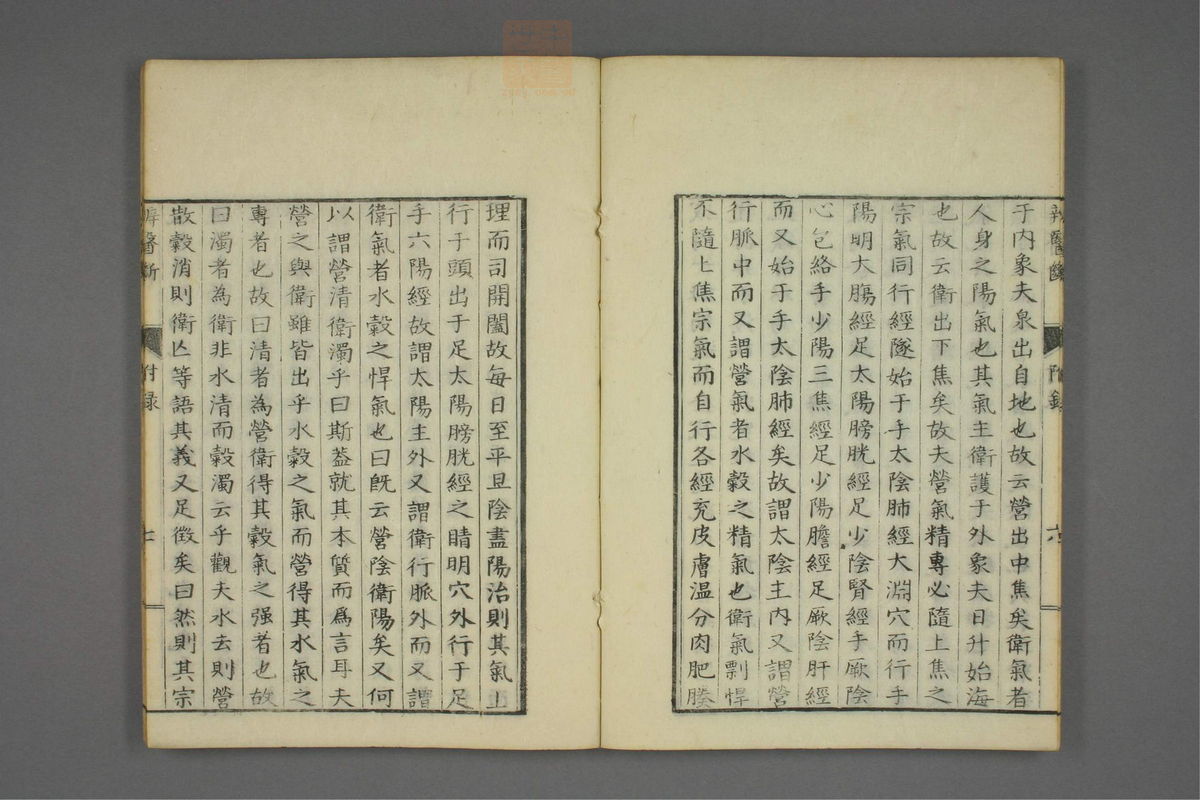 于內象夫泉出自地也故云營出中焦矣衛氣者
人身之陽氣也其氣主衛護于外象夫日升始海
也故云衛出下焦矣故夫營氣精專必隨上焦之
宗氣同行經隧始于手太陰肺經大淵穴而行手
陽明大膓經足太陽膀胱經足少陰腎經手厥陰
心包絡手少陽三焦經足少陽膽經足厥陰肝經
而又始于手太陰肺經矣故謂太陰主內又謂營
行脈中而又謂營氣者水穀之精氣也衛氣剽悍
不隨上焦宗氣而自行各經充皮膚温分肉肥腠
理而司開闔故每日至平旦陰盡陽治則其氣上
行于頭出于足太陽膀胱經之睛明穴外行于足
手六陽經故謂太陽主外又謂衛行脈外而又謂
衛氣者水穀之悍氣也曰旣云營陰衛陽矣又何
以謂營清衛濁乎曰斯葢就其本質而爲言耳夫
營之與衛雖皆出乎水穀之氣而營得其水氣之
專者也故曰清者為營衛得其穀氣之强者也故
曰濁者為衛非水清而穀濁云乎觀夫水去則營
散穀消則衛亾等語其義又足徵矣曰然則其宗
辨醫斷
附録
七